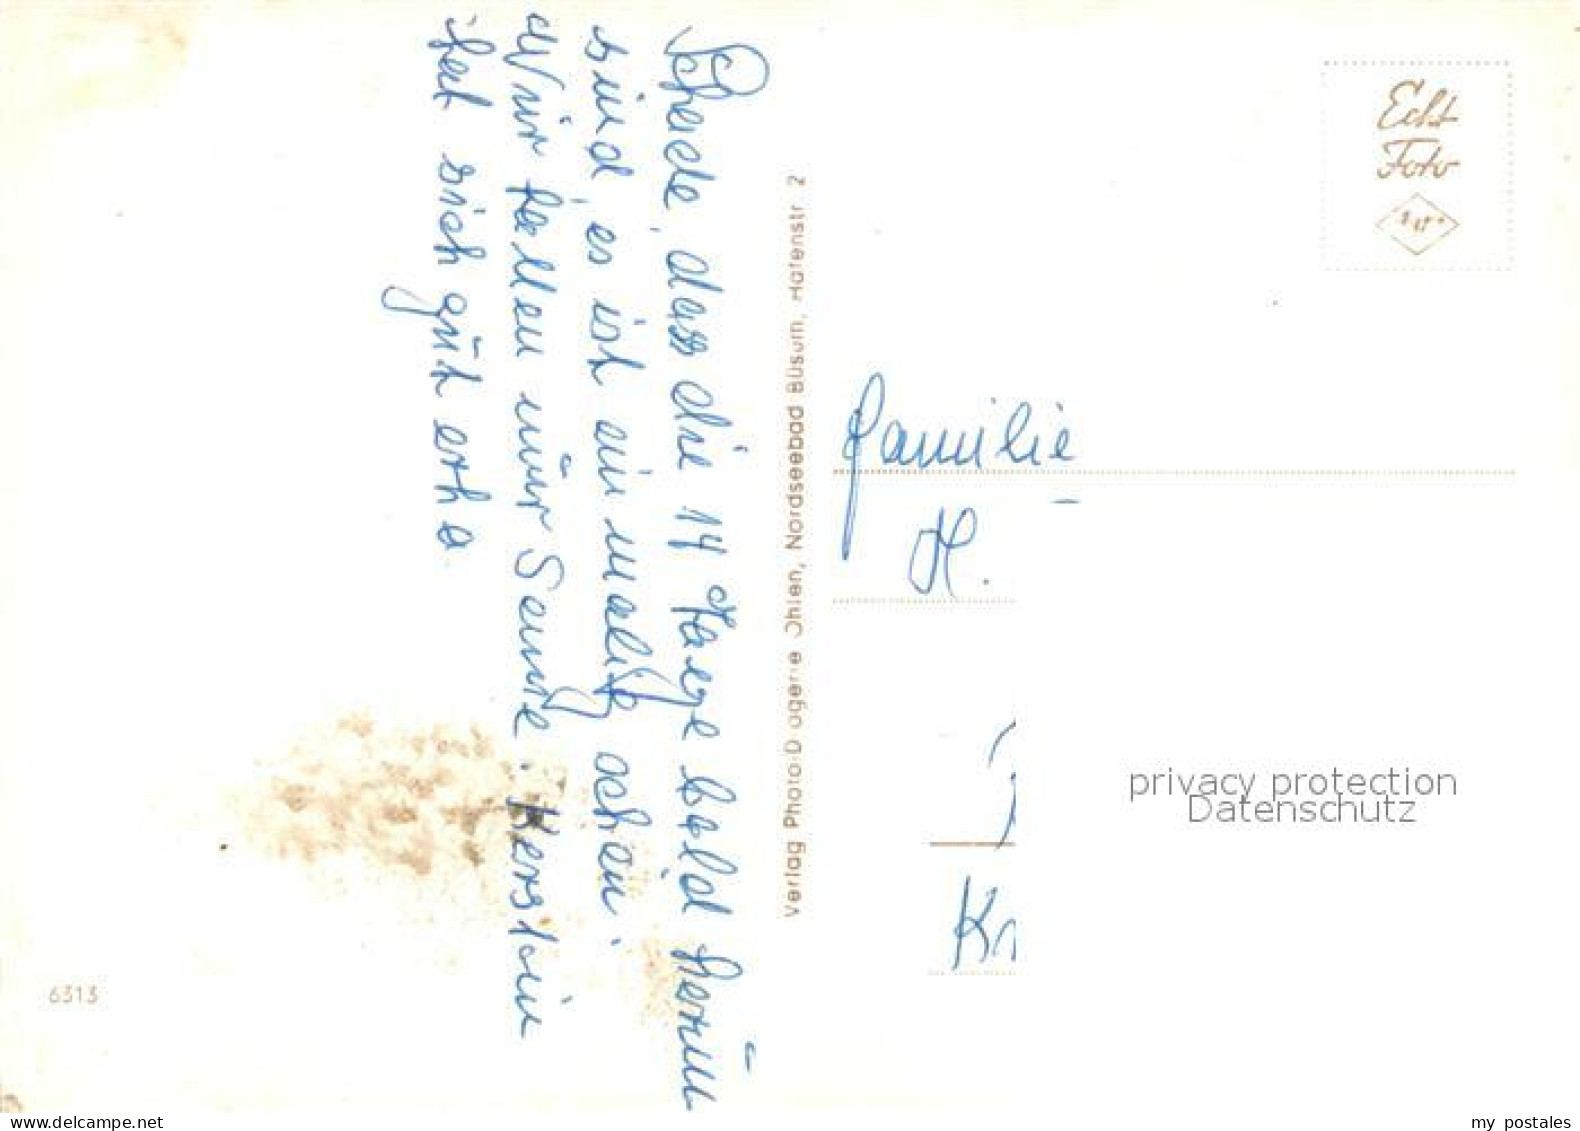 Schade, dass die 14 Tage bald herum
sind, es ist ein malig schön.
Wir fallen nur Sanne. Kerstin
hat sich gut erho
Verlag Photo-Drogerie Ohlen, Nordseebad Büsum, Hafenstr 2
Echt
Foto
Familie
H.
Kr
privacy protection
Datenschutz
6313
my postales